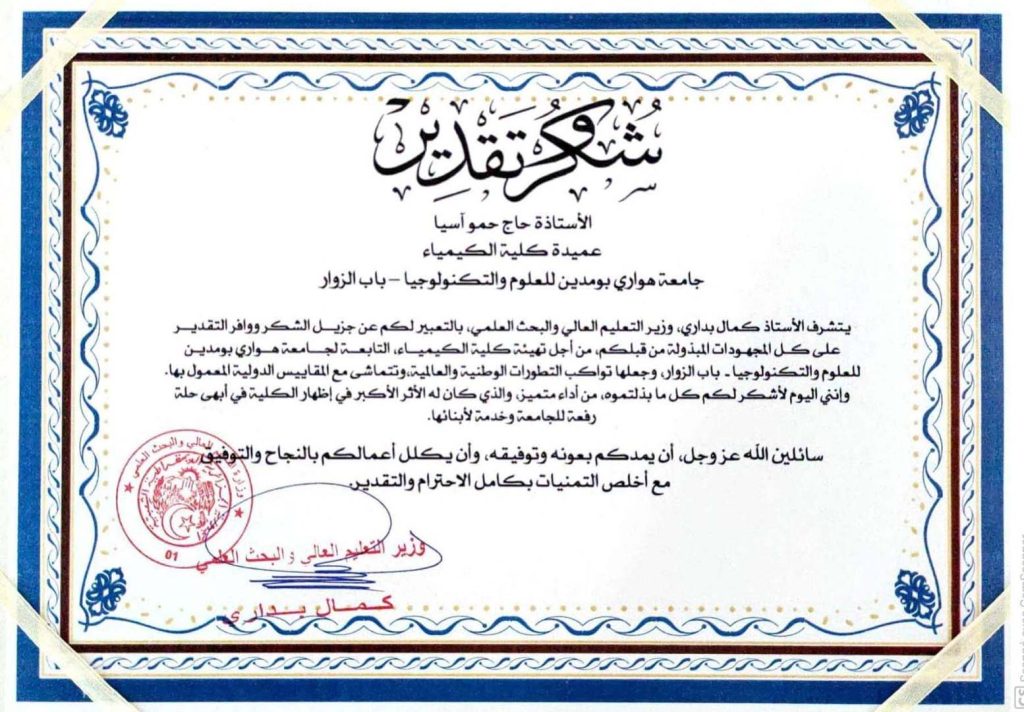 شكر وتقدير
الأستاذة حاج حمو آسيا
عميدة كلية الكيمياء
جامعة هواري بومدين للعلوم والتكنولوجيا – باب الزوار
يتشرف الأستاذ كمال بداري، وزير التعليم العالي والبحث العلمي، بالتعبير لكم عن جزيل الشكر ووافر التقدير
على كل المجهودات المبذولة من قبلكم، من أجل تهيئة كلية الكيمياء، التابعة لجامعة هواري بومدين
للعلوم والتكنولوجيا - باب الزوار، وجعلها تواكب التطورات الوطنية والعالمية،وتتماشى مع المقاييس الدولية المعمول بها.
وإنني اليوم لأشكر لكم كل ما بذلتموه، من أداء متميز، والذي كان له الأثر الأكبر في إظهار الكلية في أبهى حلة
رفعة للجامعة وخدمة لأبنائها.
سائلين الله عز وجل، أن يمدكم بعونه وتوفيقه، وأن يكلل أعمالكم بالنجاح والتوفيق
مع أخلص التمنيات بكامل الاحترام والتقدير.
وزارة التعليم العالي والبحث العلمي
01
وزير التعليم العالي والبحث العلمي
كمال بداري